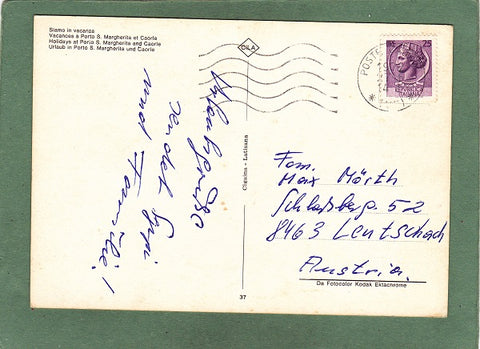 Siamo in vacanza
Vacances à Porto S. Margherita et Caorle
Holidays at Porto S. Margherita and Caorle
Urlaub in Porto S. Margherita und Caorle
DILA
POSTE
Urlaubsgrüße
sendet
und Familie!
Cigaina - Latisana
Fam.
Max Mörth
Schloßberg 52
8463 Leutschach
Austria.
Da Fotocolor Kodak Ektachrome
37